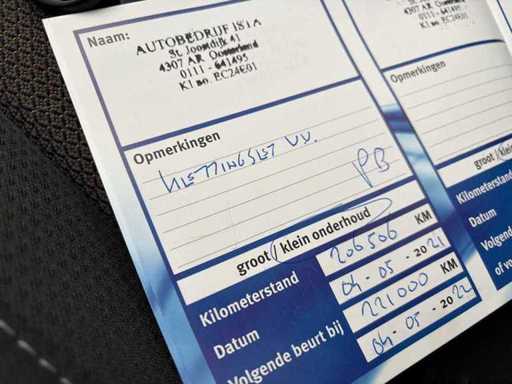 Naam:
AUTOBEDRIJF ISIA
St. Joostdijk 41
4307 AR Oosterland
0111 - 641495
K1 no. EC24E01
Opmerkingen
KETTINGSET VV.
PB
groot / klein onderhoud
Kilometerstand 206506 KM
Datum 04-05-2021
Volgende beurt bij 221000 KM
04-05-2022
4307 AR
0111 - 641495
K1 no. EC24E01
Opmerkingen
groot / klein
Kilometerstand
Datum
Volgende
of vo